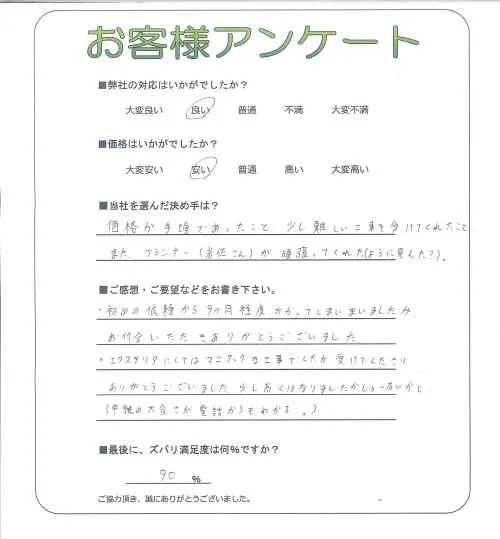 お客様アンケート
■弊社の対応はいかがでしたか？
大変良い 良い 普通 不満 大変不満
■価格はいかがでしたか？
大変安い 安い 普通 高い 大変高い
■当社を選んだ決め手は？
価格が手頃であったこと、少し難しい工事を受けてくれたこと
また、プランナー(岩佐さん)が頑張ってくれた(ように見えた?)。
■ご感想・ご要望などをお書き下さい。
・初めの依頼から9ヶ月程度かかってしまいまいましたが
お付合いいただきありがとうございました。
・エクステリアにしてはマニアックな工事でしたが受けてくださり
ありがとうございました。少し高くはなりましたが
(中継の大変さが電話からもわかる。)
■最後に、ズバリ満足度は何％ですか？
90 ％
ご協力頂き、誠にありがとうございました。